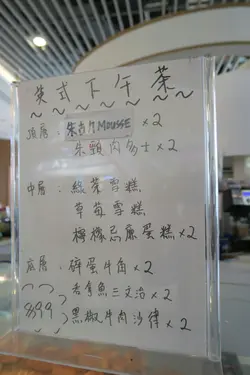 英式下午茶
頂層：朱古力MOUSSE ×2
朱頸肉多士 ×2
中層：綠茶雪糕
草莓雪糕
檸檬忌廉蛋糕×2
底層：碎蛋牛角 ×2
吞拿魚三文治 ×2
黑椒牛肉沙律 ×2